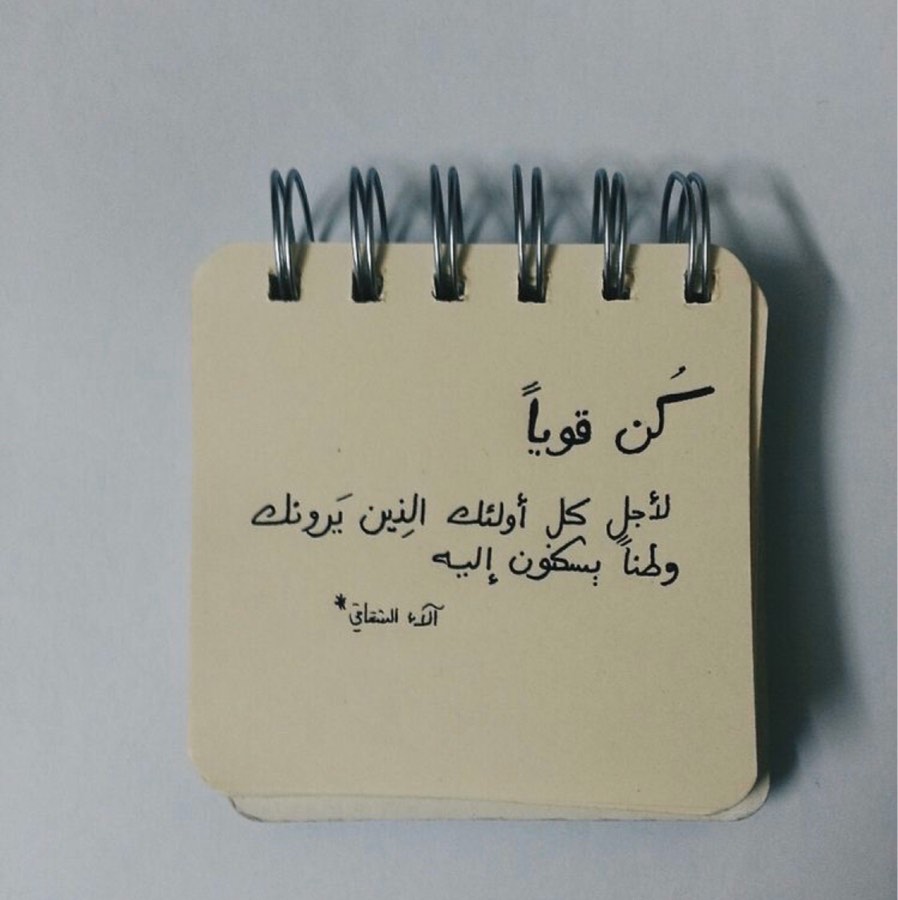 كُن قوياً
لأجل كل أولئك الذِين يَرونك
وطناً يسكنون إليه
آلاء الشقاقي*